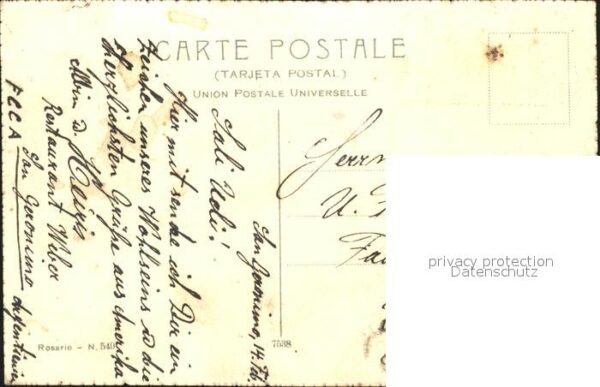 CARTE POSTALE
(TARJETA POSTAL)
UNION POSTALE UNIVERSELLE
San Jeronimo, 14.
Sali Udi!
Hier mit sende ich Dir ein
Zeichen unseres Wohlseins u die
herzlichsten Grüße aus Amerika
Albin d.
Restaurant Weber
FCCA San Jeronimo Argentinien
Herrn
U.
Rosario - N. 549
7538
privacy protection
Datenschutz